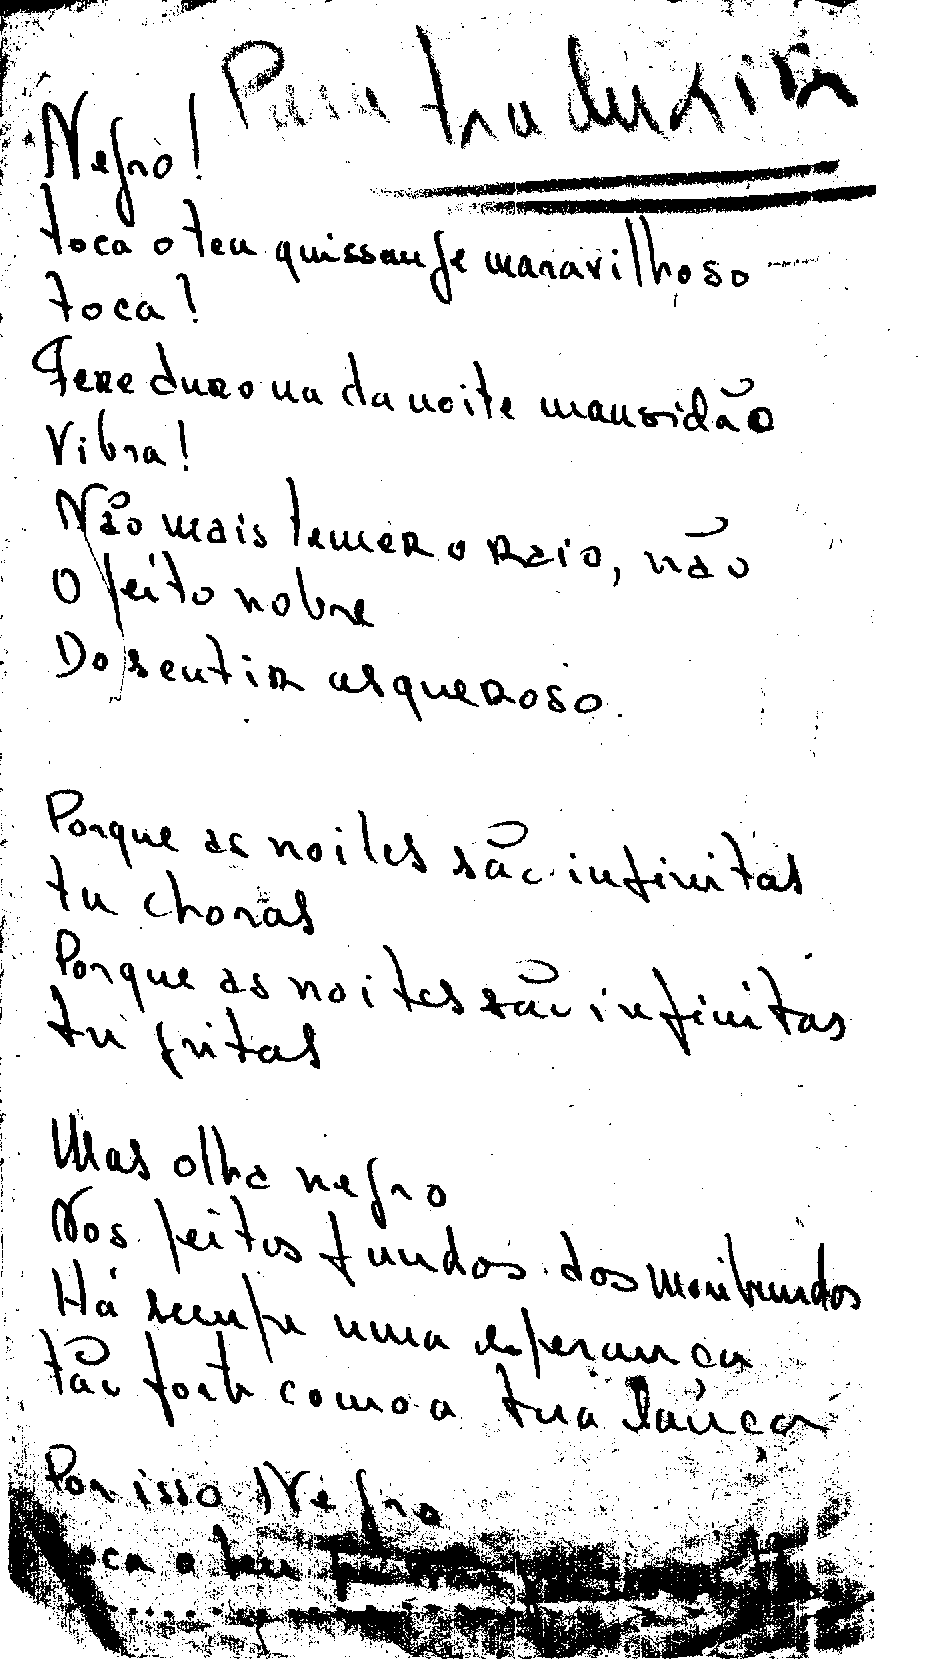 Para traduzir
Negro!
toca o teu quissange maravilhoso
toca!
Fere duro na da noite mansidão
Vibra!
Não mais temer o raio, não
O peito nobre
Do sentir asqueroso.
Porque as noites são infinitas
tu choras
Porque as noites são infinitas
tu gritas
Mas olha negro
Nos peitos fundos dos moribundos
Há sempre uma esperança
tão forte como a tua lança
Por isso Negro
toca o teu